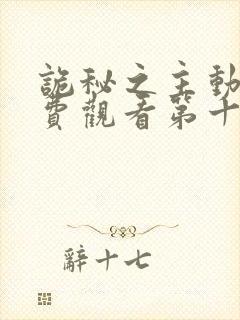 詭秘之主動
費觀看第十
辭十七